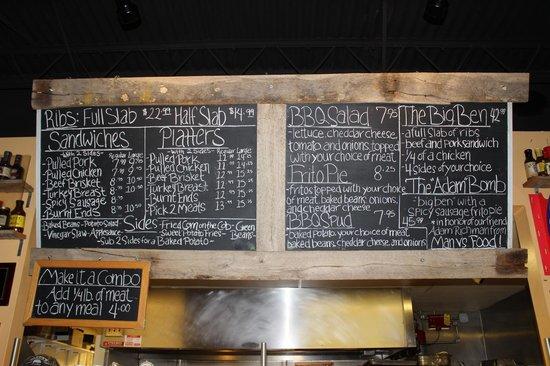 Ribs: Full Slab $22.99 Half Slab $14.99
Sandwiches
with 2 Sides
Regular Large
Pulled Pork
Pulled Chicken
Beef Brisket
Turkey Breast
Spicy Sausage
Burnt Ends
Platters
with 2 Sides
Regular Large
Pulled Pork
Pulled Chicken
Beef Brisket
Turkey Breast
Burnt Ends
Pick 2 Meats
Sides
Baked Beans - Potato Salad
Vinegar Slaw - Applesauce
Fried Corn on the Cob - Green
Sweet Potato Fries - Beans
Sub 2 Sides for a
Baked Potato
BBQ Salad 7.95
-lettuce, cheddar cheese,
tomato and onions topped
with your choice of meat
Frito Pie 8.25
-fritos topped with your choice
of meat, baked beans, onions,
and cheddar cheese
BBQ Spud 7.95
Baked potato your choice of meat,
baked beans, cheddar cheese, and onions
The Big Ben 42.99
a full slab of ribs
Beef and Pork sandwich
1/4 of a chicken
4 sides of your choice
The Adam Bomb
"Big ben" with a
spicy sausage frito pie
45.99 * in honor of our friend
Adam Richman from
Man vs Food!
Make it a Combo
Add 1/4 lb. of meat
to any meal
4.00